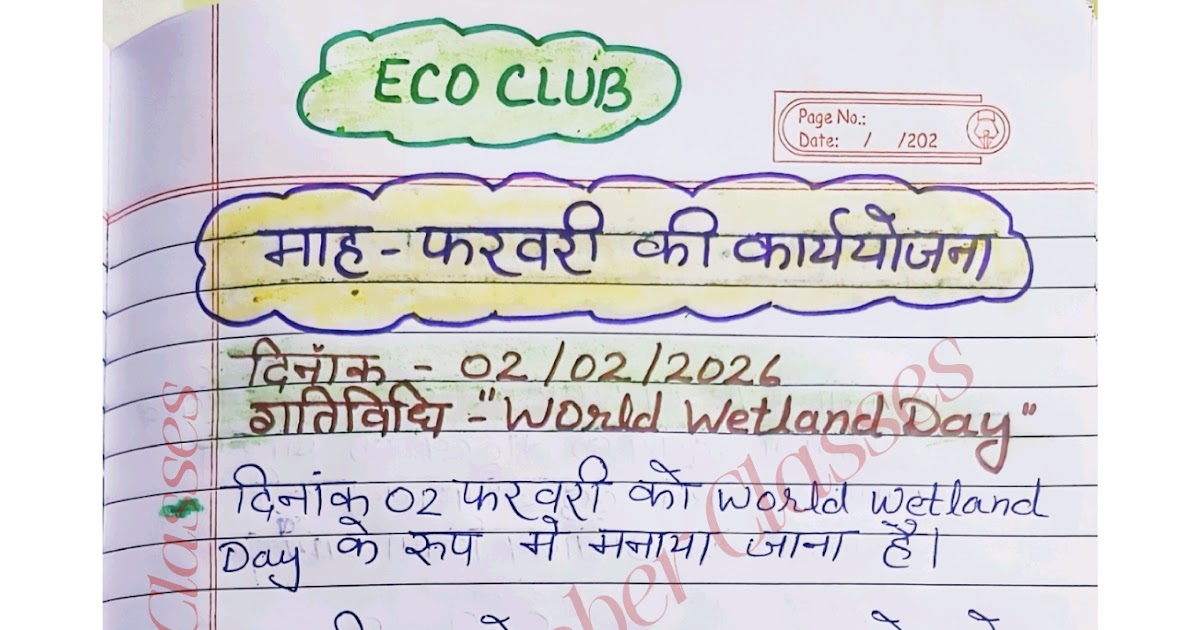 ECO CLUB
Page No.:
Date: / /202
माह - फरवरी की कार्ययोजना
दिनाँक - 02/02/2026
गतिविधि - "World Wetland Day"
दिनांक 02 फरवरी को World Wetland
Day के रूप में मनाया जाना है।
Classes
ber Classes